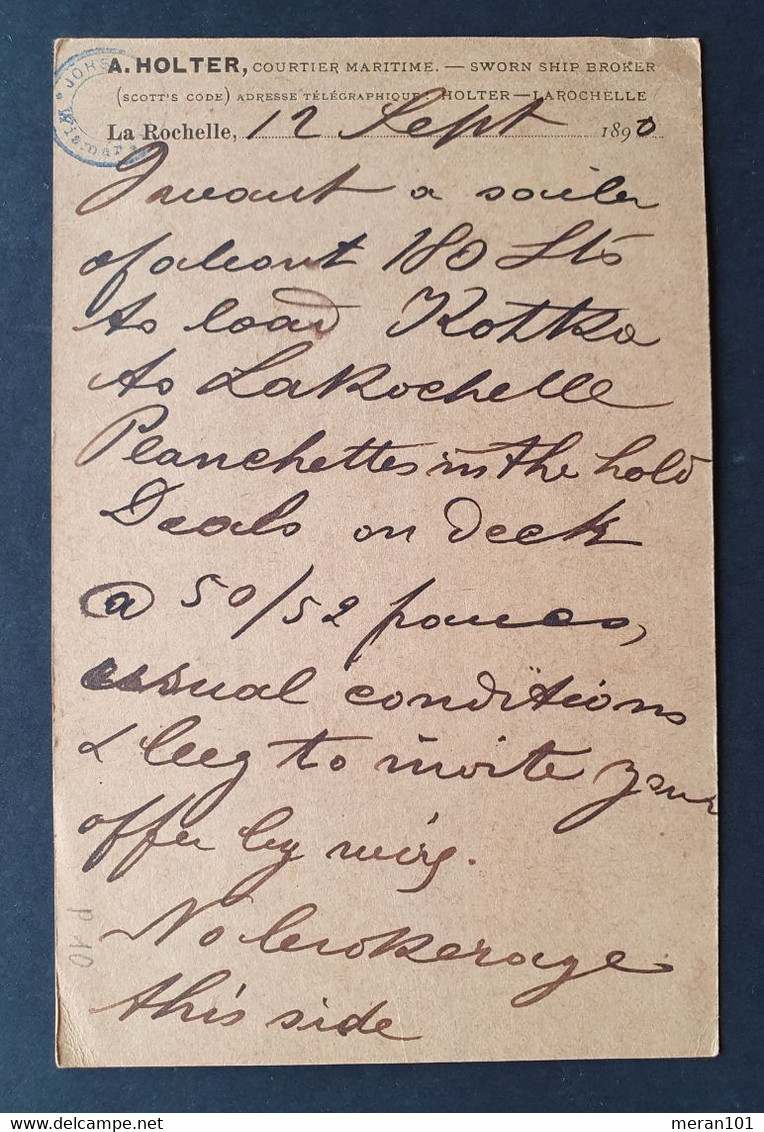 A. HOLTER, COURTIER MARITIME. — SWORN SHIP BROKER
(SCOTT'S CODE) ADRESSE TÉLÉGRAPHIQUE: HOLTER—LAROCHELLE
La Rochelle, 12 Sept 1890
I want a sailer
of about 180 Sts
to load Kotka
to LaRochelle
Planchettes in the hold
Deals on deck
@ 50/52 francs,
usual conditions
& beg to invite your
offer by wire.
No brokerage
this side
P 10
JOHS
Wismar
meran101